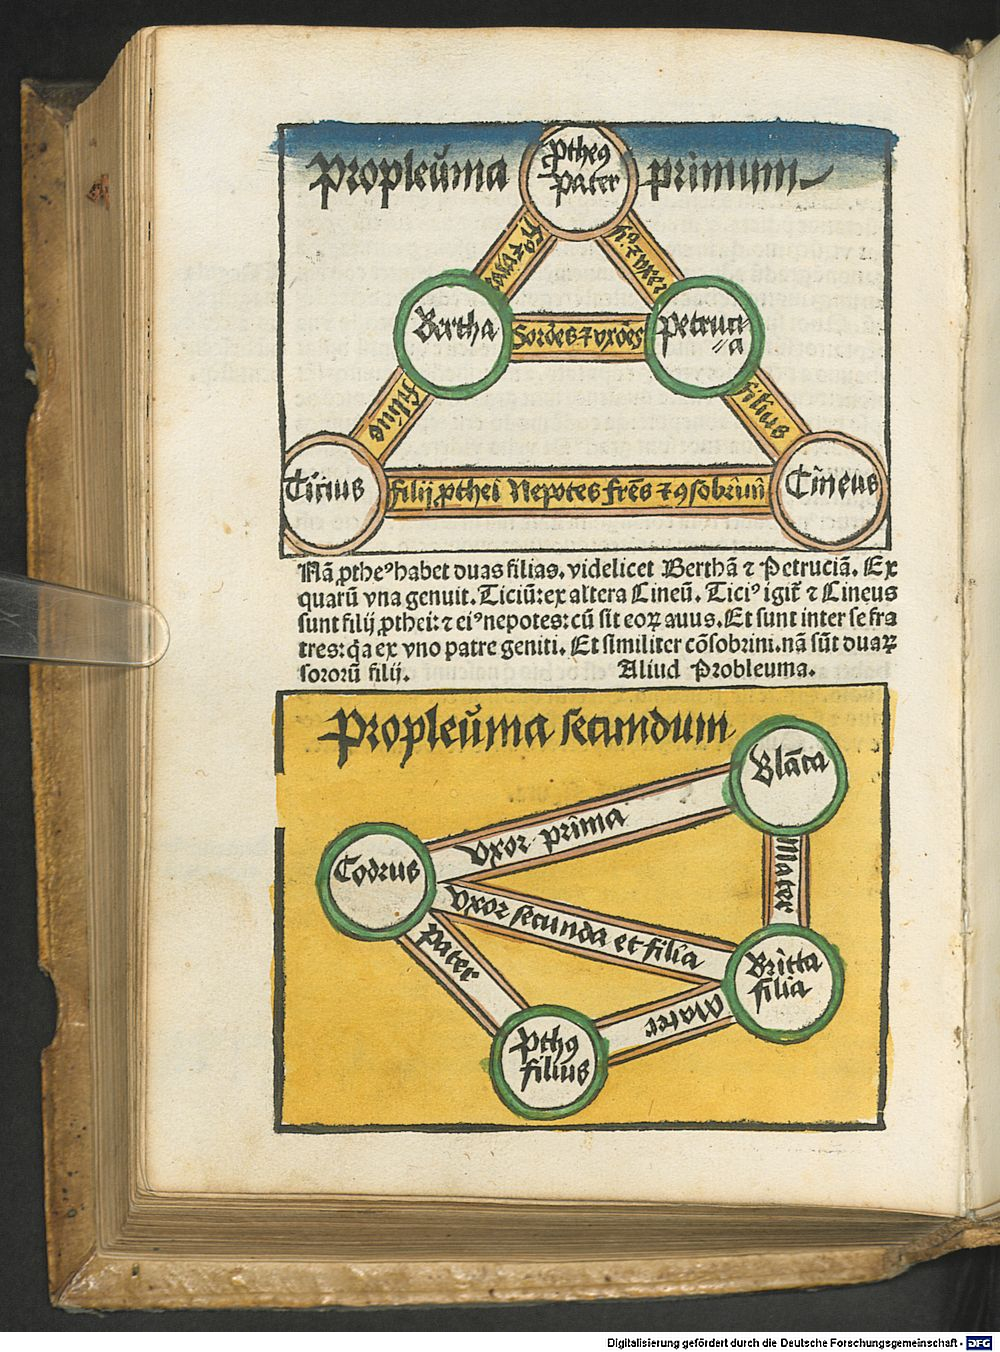 Propleūma primum
ꝓtheꝯ
pater
fiª ⁊ vxor
fiª ⁊ vxor
Bertha
Sorōes ⁊ vxōes
Petruci
a
filius
filius
Ticius
filij ꝓthei Nepotes frēs ⁊ ꝯsobrini
Cineus
Nā ꝓtheꝰ habet duas filias, videlicet Berthā ⁊ Petruciā. Ex
quarū vna genuit. Ticiū: ex altera Cineū. Ticiꝰ igit̄ ⁊ Cineus
sunt filij ꝓthei: ⁊ eiꝰ nepotes: cū sit eoꝝ auus. Et sunt inter se fra
tres: q̄a ex vno patre geniti. Et similiter cōsobrini. nā sūt duaꝝ
sororū filij. Aliud Probleuma.
Propleūma secundum
Blāca
Vxor prima
Codrus
Mater
Vxor secunda et filia
Pater
Britta
filia
Mater
Pthꝯ
filius
Digitalisierung gefördert durch die Deutsche Forschungsgemeinschaft - DFG